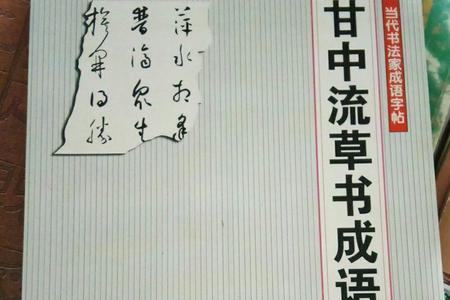 当代书法家成语字帖
甘中流草书成语
萍水相逢
普济众生
旗开得胜